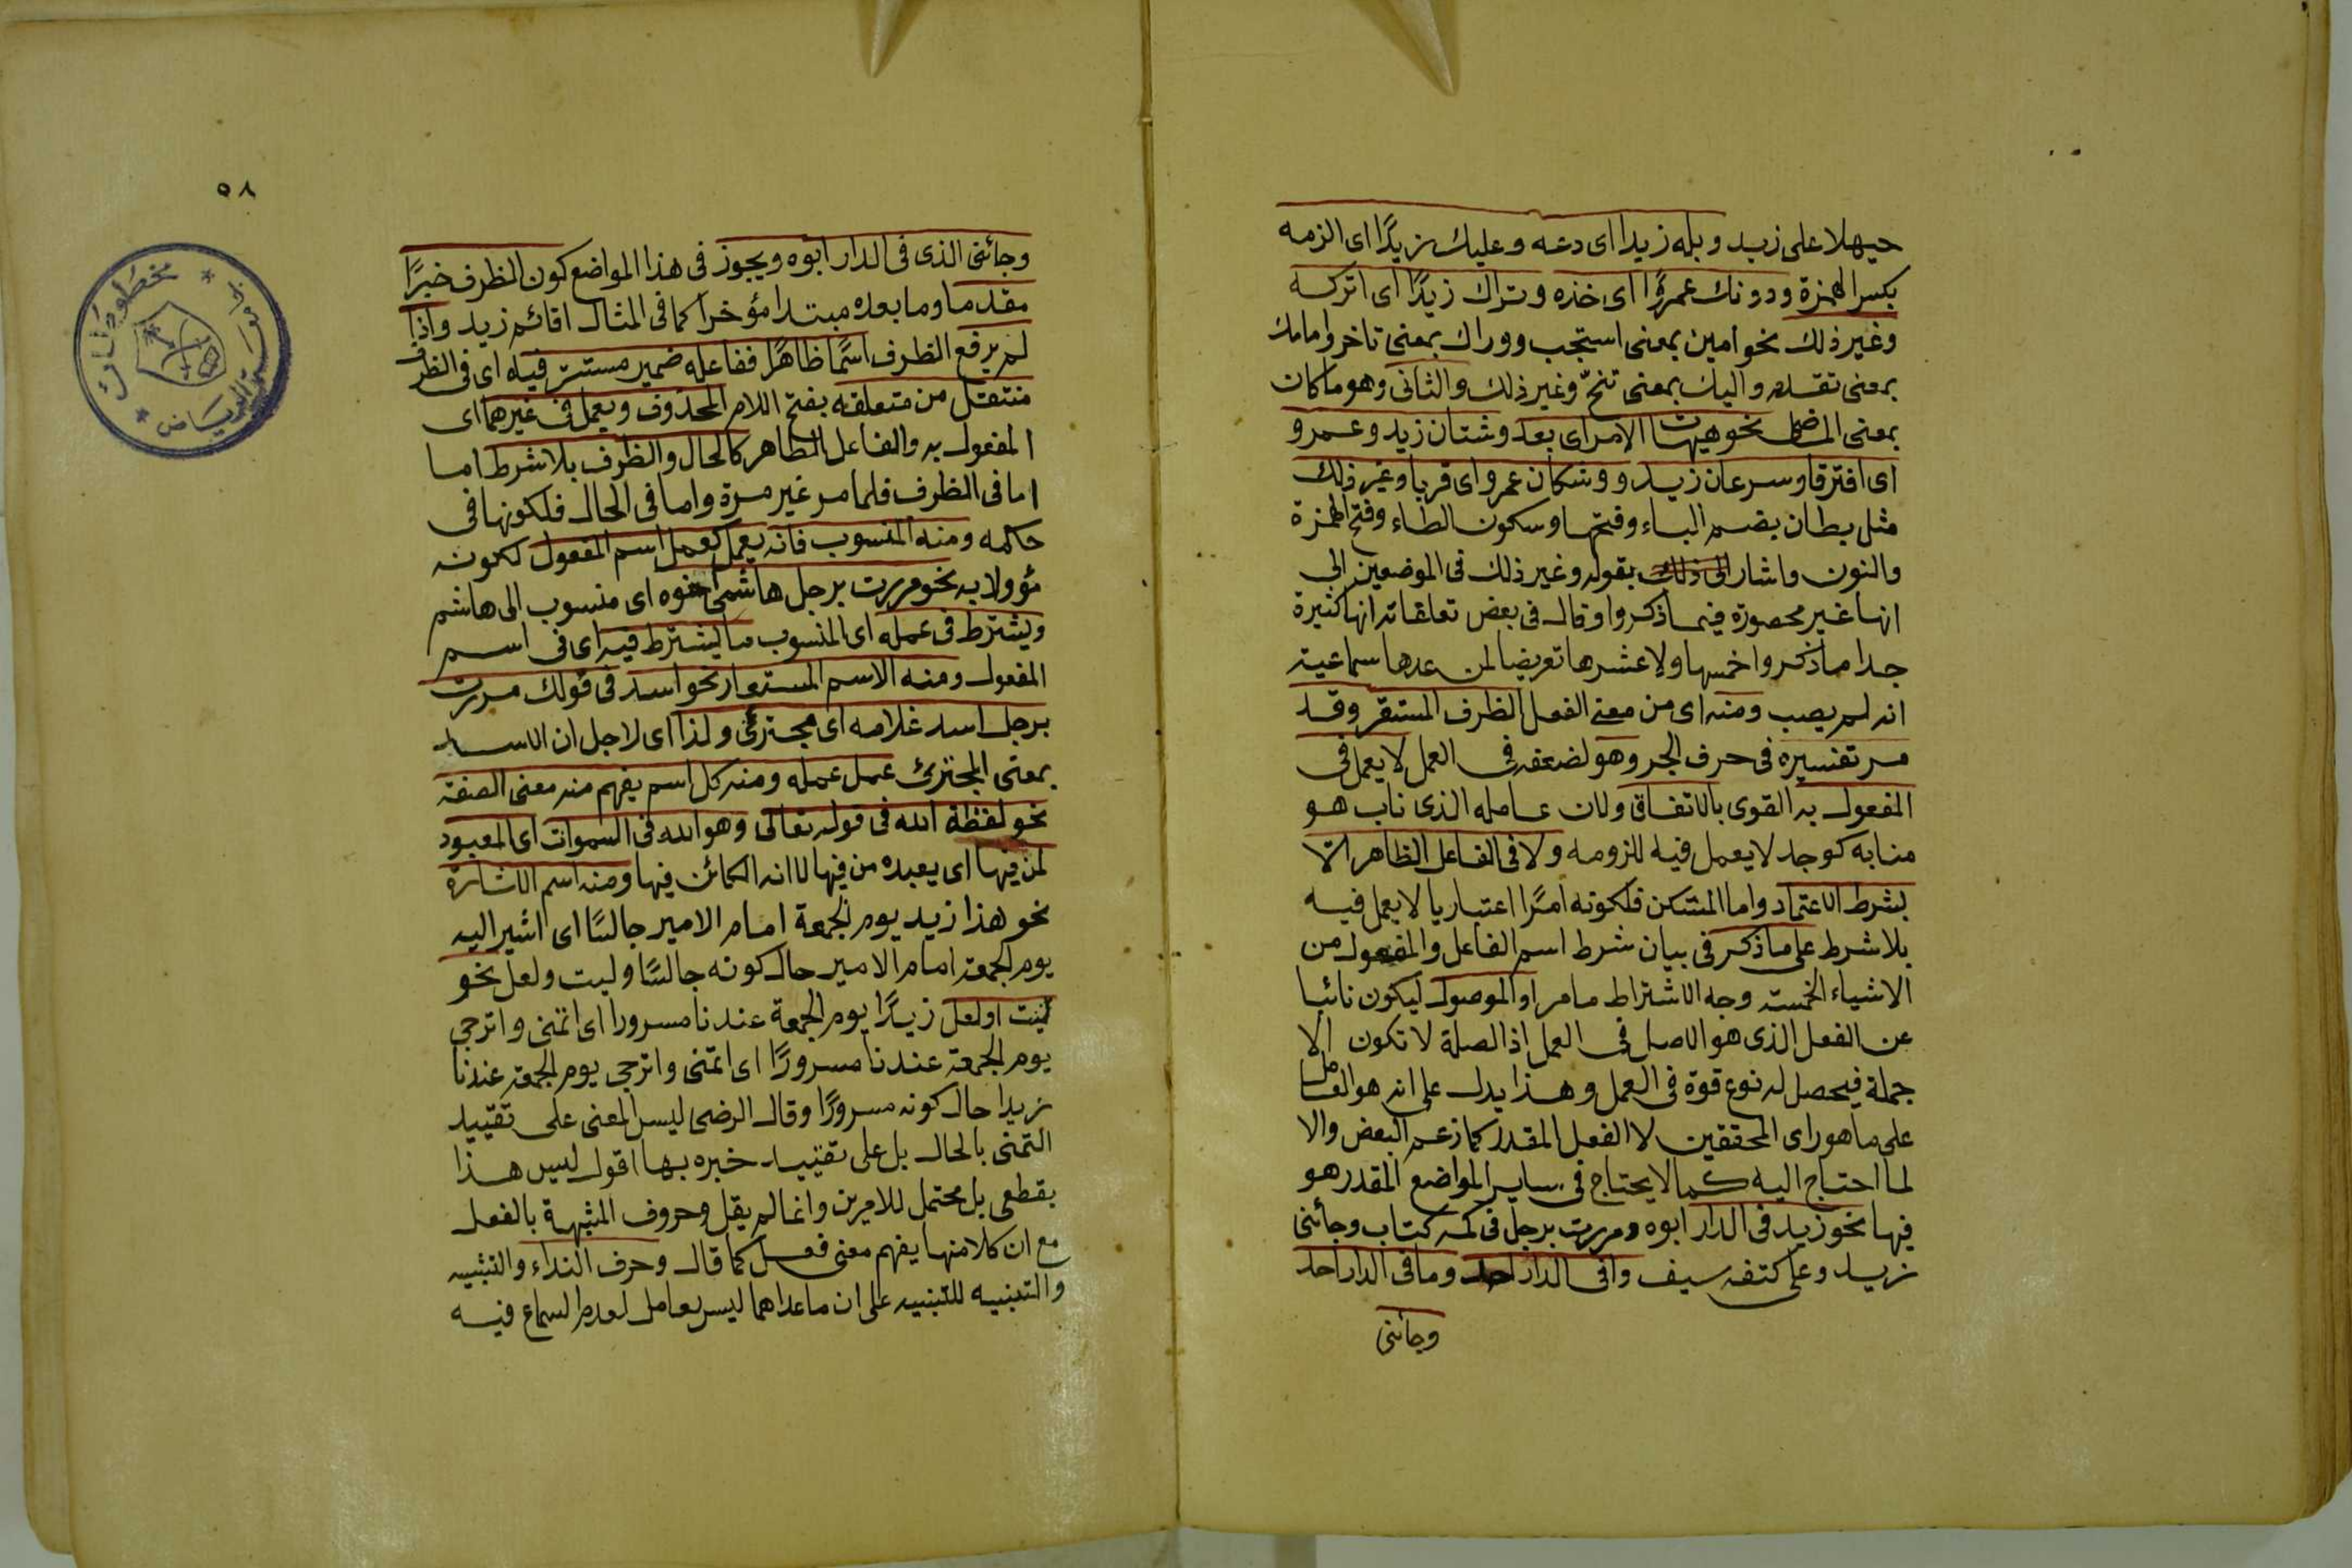 حيهلا على زيد وبله زيدا اى دعه وعليك زيدًا اى الزمه
بكسر الهمزة ودونك عمرًوا اى خذه وتراك زيدًا اى اتركه
وغير ذلك نحو امين بمعنى استجب ووراك بمعنى تاخر وامامك
بمعنى تقدم واليك بمعنى تنحّ وغير ذلك والثانى وهو ما كان
بمعنى الماضى نحو هيهات الامر اى بعد وشتان زيد وعمرو
اى افترقا وسرعان زيد ووشكان عمرو اى قربا وغير ذلك
مثل بطان بضم الباء وفتحها وسكون الطاء وفتح الهمزة
والنون واشار الى ذلك بقوله وغير ذلك فى الموضعين الى
انها غير محصورة فيما ذكروا وقال فى بعض تعلقاته انها كثيرة
جدا ما ذكروا خمسها ولا عشرها تعريضا لمن عدها سماعية
انه لم يصب ومنه اى من معنى الفعل الظرف المستقر وقد
مر تفسيره فى حرف الجر وهو لضعفه فى العمل لا يعمل فى
المفعول به القوى بالاتفاق ولان عامله الذى ناب هو
منابه كوجد لا يعمل فيه للزومه ولا فى الفاعل الظاهر الا
بشرط الاعتماد واما المستكن فلكونه امرًا اعتباريا لا يعمل فيه
بلا شرط على ما ذكر فى بيان شرط اسم الفاعل والمفعول من
الاشياء الخمسة وجه الاشتراط ما مر او الموصول ليكون نائبا
عن الفعل الذى هو الاصل فى العمل اذ الصلة لا تكون الا
جملة فيحصل له نوع قوة فى العمل وهذا يدل على انه هو العامل
على ما هو راى المحققين لا الفعل المقدر كما زعم البعض والا
لما احتاج اليه كما لا يحتاج فى ساير المواضع المقدر هو
فيها نحو زيد فى الدار ابوه ومررت برجل فى كمه كتاب وجائنى
زيد وعلى كتفه سيف وافى الدار احد وما فى الدار احد
وجائنى
٥٨
وجائنى الذى فى الدار ابوه ويجوز فى هذا المواضع كون الظرف خبرًا
مقدما وما بعده مبتدا مؤخرا كما فى المثال اقائم زيد واذا
لم يرفع الظرف اسمًا ظاهرًا ففاعله ضمير مستتر فيه اى فى الظرف
منتقل من متعلقه بفتح اللام المحذوف ويعمل فى غيرهما اى
المفعول به والفاعل الظاهر كالحال والظرف بلا شرط اما
اما فى الظرف فلما مر غير مرة واما فى الحال فلكونها فى
حكمه ومنه المنسوب فانه يعمل كعمل اسم المفعول لكونه
مؤولا به نحو مررت برجل هاشمى اخوه اى منسوب الى هاشم
ويشترط فى عمله اى المنسوب ما يشترط فيه اى فى اسم
المفعول ومنه الاسم المستعار نحو اسد فى قولك مررت
برجل اسد غلامه اى مجترئى ولذا اى لاجل ان الاسد
بمعنى المجترئ عمل عمله ومنه كل اسم يفهم منه معنى الصفة
نحو لفظة الله فى قوله تعالى وهو الله فى السموات اى المعبود
لمن فيها اى يعبده من فيها لا انه الكائن فيها ومنه اسم الاشارة
نحو هذا زيد يوم الجمعة امام الامير جالسًا اى اشير اليه
يوم الجمعة امام الامير حال كونه جالسًا وليت ولعل نحو
ليت او لعل زيدًا يوم الجمعة عندنا مسرورا اى اتمنى واترجى
يوم الجمعة عندنا مسرورًا اى اتمنى واترجى يوم الجمعة عندنا
زيدا حال كونه مسرورًا وقال الرضى ليس المعنى على تقييد
التمنى بالحال بل على تقييد خبره بها اقول ليس هذا
بقطعى بل محتمل للامرين وانما لم يقل وحروف المشبهة بالفعل
مع ان كلا منها يفهم معنى فعل كما قال وحرف النداء والتشبيه
والتنبيه للتنبيه على ان ما عداهما ليس بعامل لعدم السماع فيه